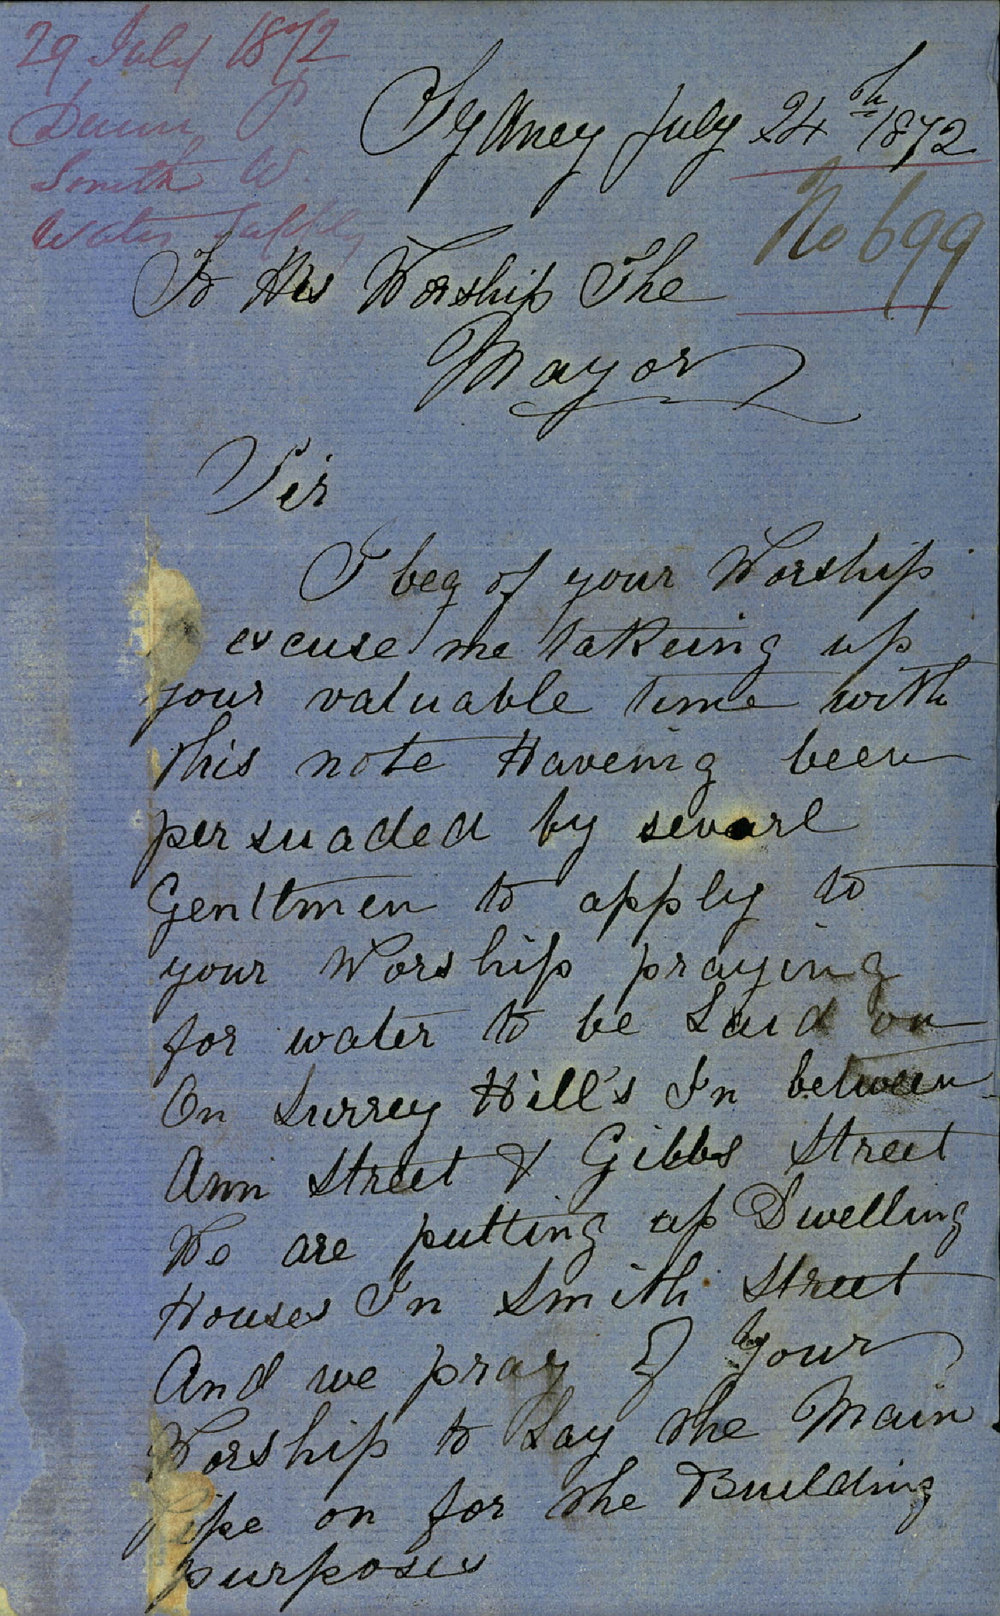 29 July 1872
Dunn P
Smith W.
Water Supply
Sydney July 24th 1872
No 699
To His Worship The
Mayor
Sir
I beg of your Worship
excuse me takeing up
your valuable time with
this note Haveing been
persuaded by sevarl
Genltmen to apply to
your Worship praying
for water to be Laid on
On Surrey Hill's In between
Ann Street & Gibbs Street
We are putting up Dwelling
Houses In Smith Street
And we pray of your
Worship to Lay the Main
Pipe on for the Building
purposes